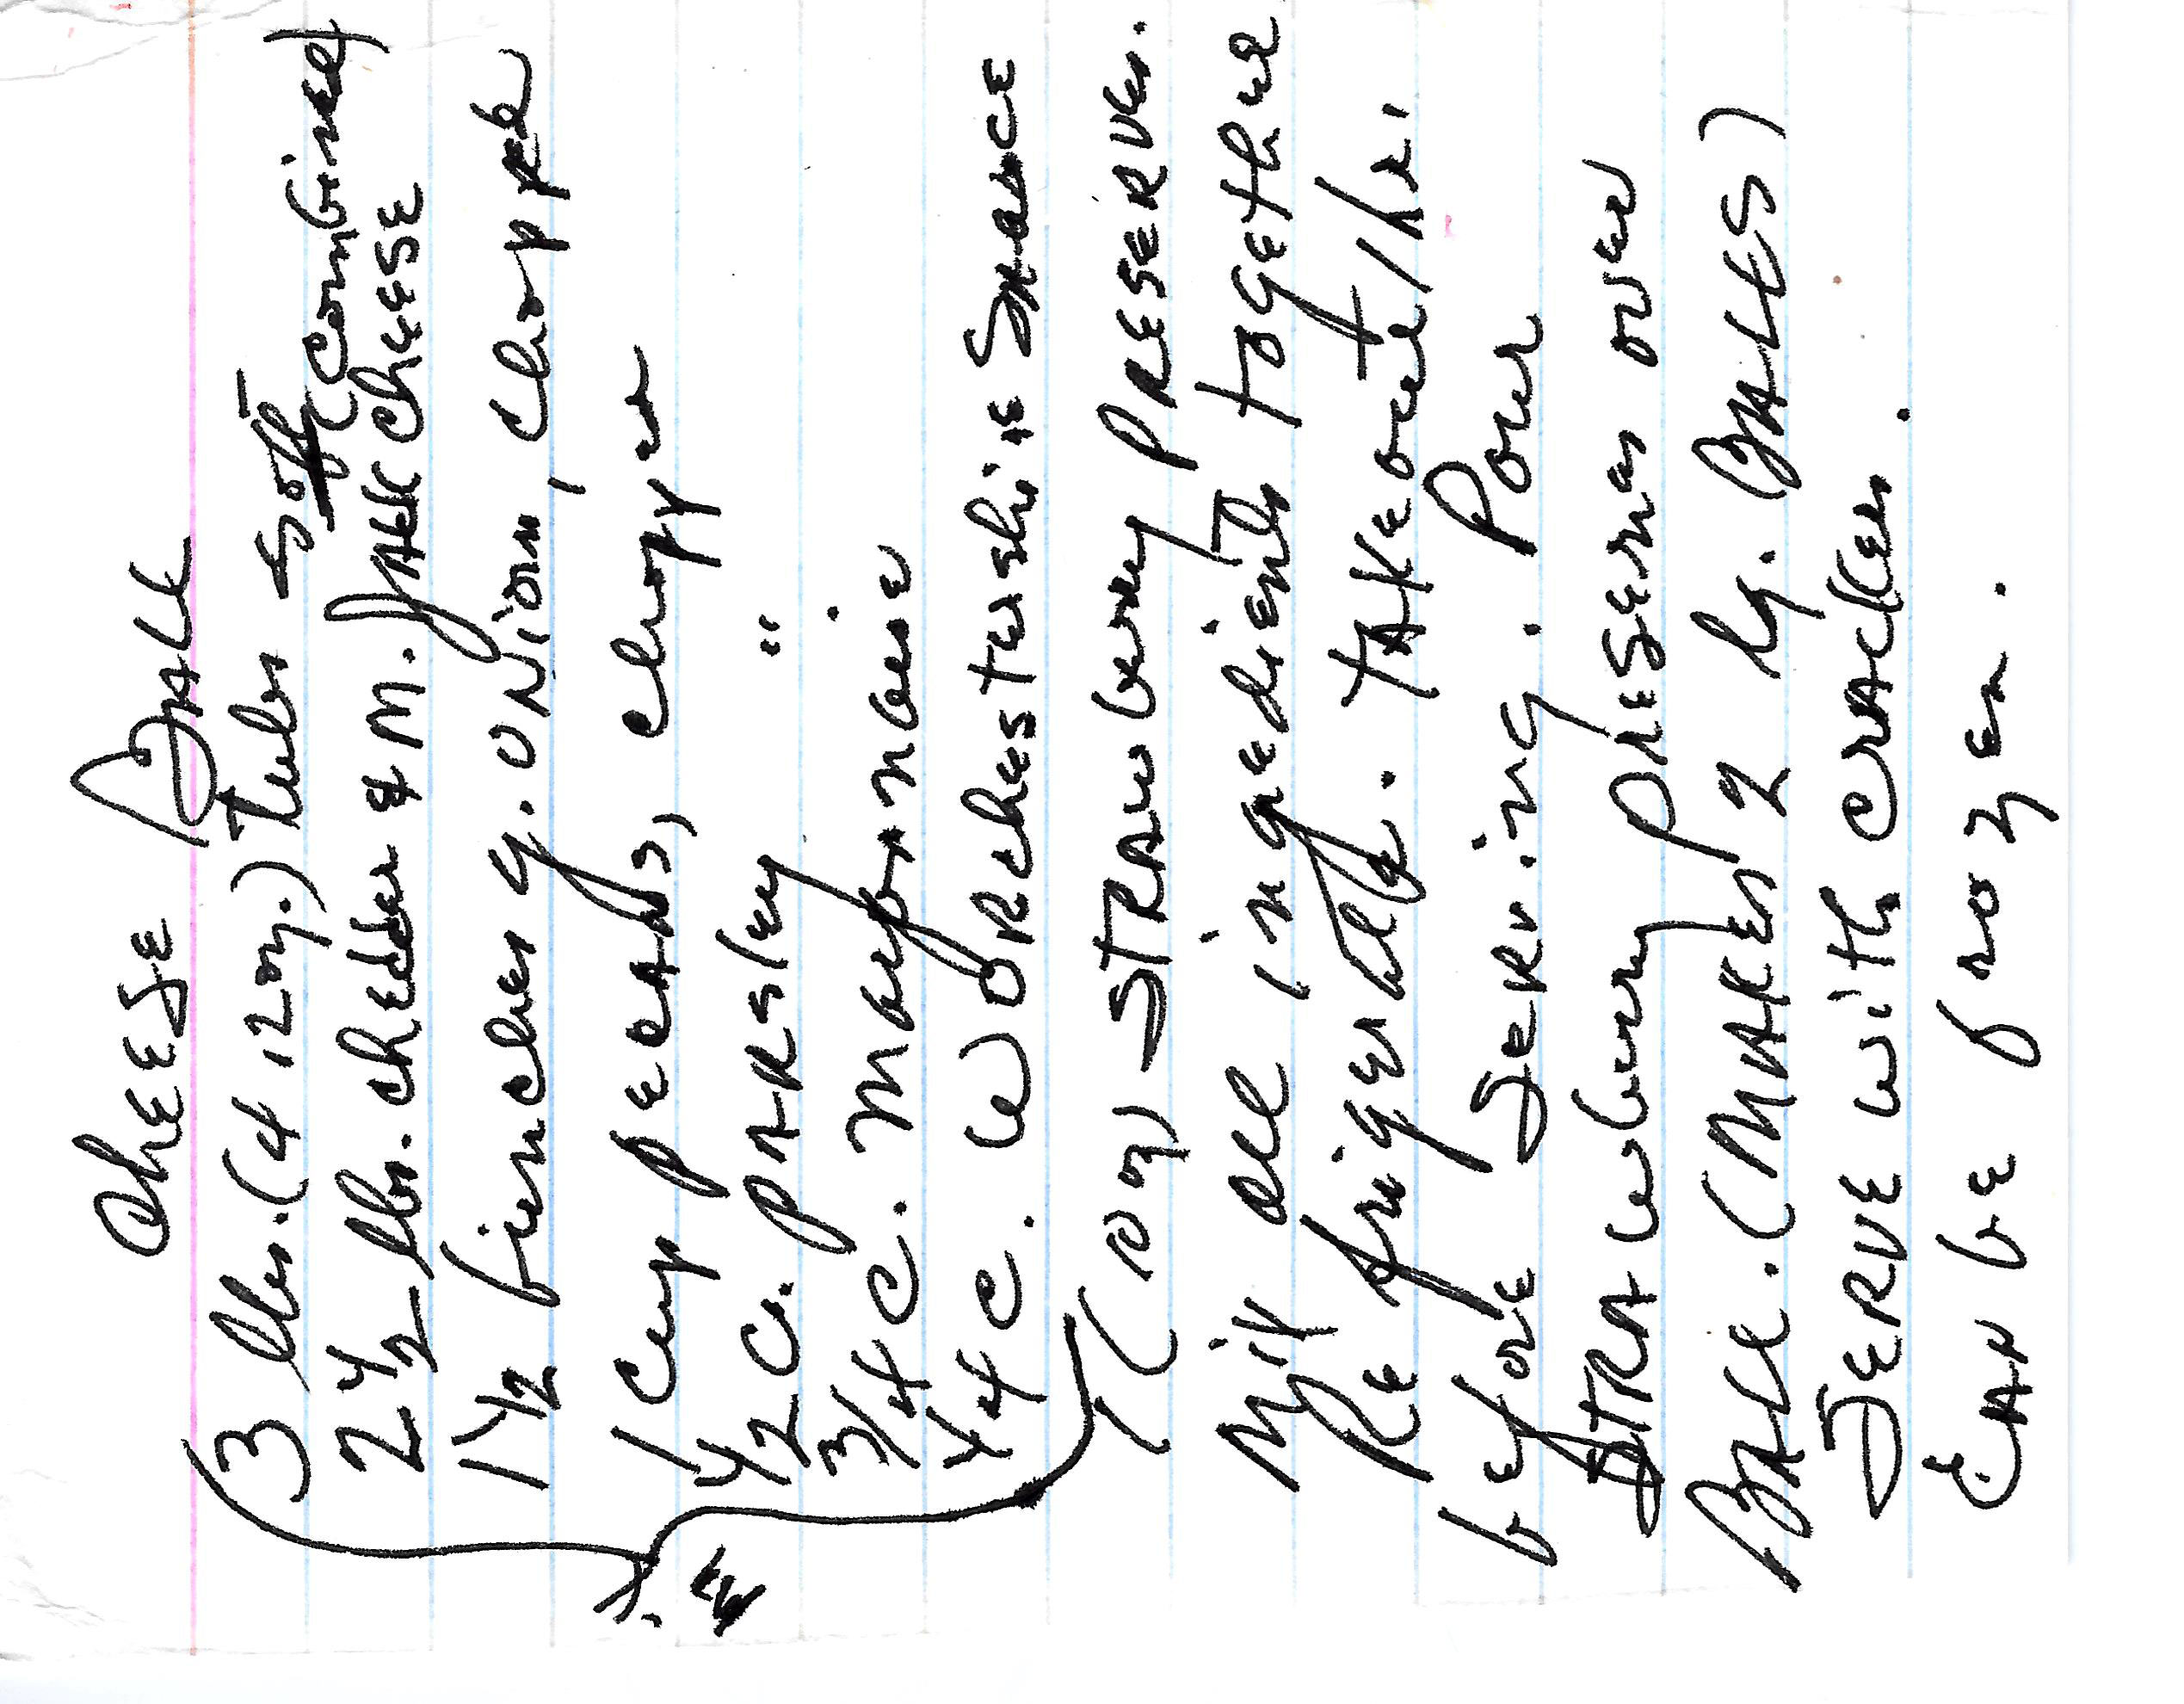 Cheese Ball
3 lbs. (4 12oz.) Tubs soft
combined
2 1/2 lbs. cheddar & M. Jack cheese
1 1/2 bunches g. onion, chopped
1 cup pecans, chopped
1/2 c. parsley "
3/4 c. mayonnaise
1/4 c. Worchestershire Sauce
(10 oz) Strawberry Preserves.
Mix all ingredients together
Refrigerate. Take out 1 hr.
before serving. Pour
Strawberry Preserves over
Ball. (Makes 2 lg. Balls)
Serve with crackers.
Can be frozen.